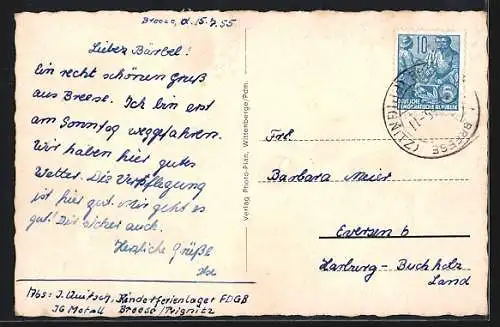 Breese, d. 15.7.55
Lieber Bärbel!
Ein recht schönen Gruß
aus Breese. Ich bin erst
am Sonntag weggefahren.
Wir haben hier gutes
Wetter. Die Verpflegung
ist hier gut. Mir geht es
gut! Dir sicher auch.
Herzliche Grüße
Abs: J. Kinderferienlager FDGB
IG Metall Breese/Prignitz
Verlag Photo-Plän, Wittenberge/Pdm.
10
DEUTSCHE
DEMOKRATISCHE REPUBLIK
BREESE
Frl.
Barbara Meier
Eversen b
Harburg-Buchholz
Land